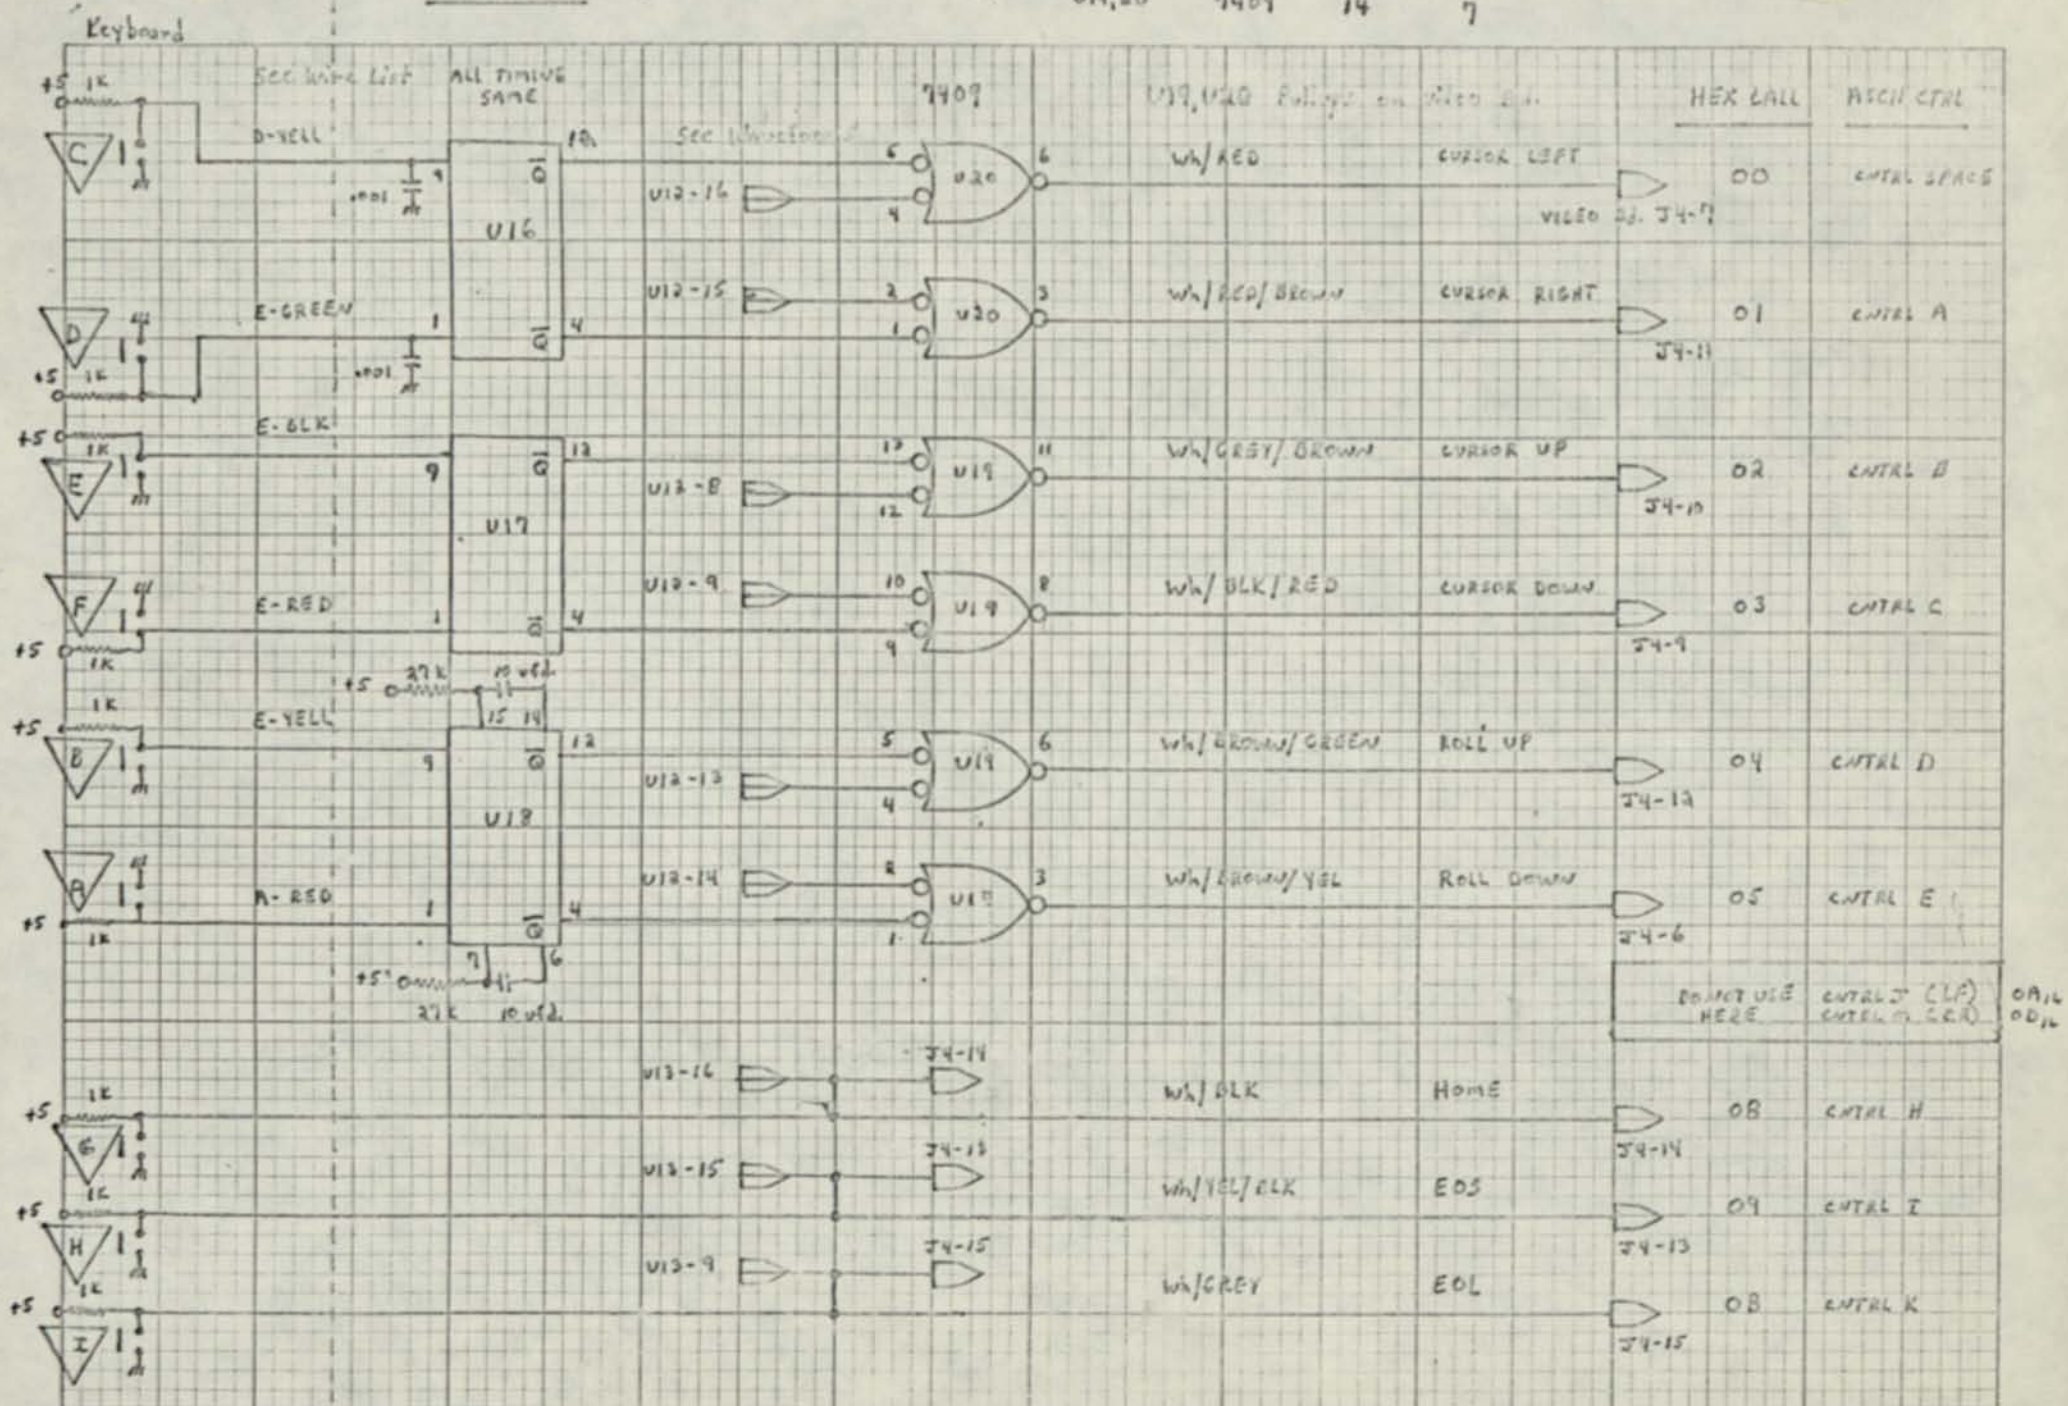 7409 14 7
Keyboard
See Wire List
ALL TIMING SAME
7409
U19, U20 Pullups on Video Bd.
HEX CALL
ASCII CTRL
+5 1K
C
D-YELL
.001
9
U16
Q
12
U12-16
5
4
U20
6
Wh/RED
CURSOR LEFT
VIDEO Bd. J4-7
00
CNTRL SPACE
D
+5 1K
E-GREEN
.001
1
Q
4
U12-15
2
1
U20
3
Wh/RED/BROWN
CURSOR RIGHT
J4-11
01
CNTRL A
+5
1K
E
E-BLK
9
U17
Q
12
U12-8
13
12
U19
11
Wh/GREY/BROWN
CURSOR UP
J4-10
02
CNTRL B
F
+5
1K
E-RED
1
Q
4
U12-9
10
9
U19
8
Wh/BLK/RED
CURSOR DOWN
J4-9
03
CNTRL C
+5 27K 10 ufd.
15 14
1K
+5
B
E-YELL
9
U18
Q
12
U12-13
5
4
U19
6
Wh/BROWN/GREEN
ROLL UP
J4-12
04
CNTRL D
A
+5
1K
A-RED
1
Q
4
7 6
+5
27K 10 ufd.
U12-14
2
1
U19
3
Wh/BROWN/YEL
ROLL DOWN
J4-6
05
CNTRL E
DO NOT USE HERE
CNTRL J (LF) 0A16
CNTRL M (CR) 0D16
U13-16
J4-14
1K
+5
G
Wh/BLK
HOME
J4-14
08
CNTRL H
U13-15
J4-13
1K
+5
H
Wh/YEL/BLK
EOS
J4-13
09
CNTRL I
U13-9
J4-15
1K
+5
I
Wh/GREY
EOL
J4-15
0B
CNTRL K